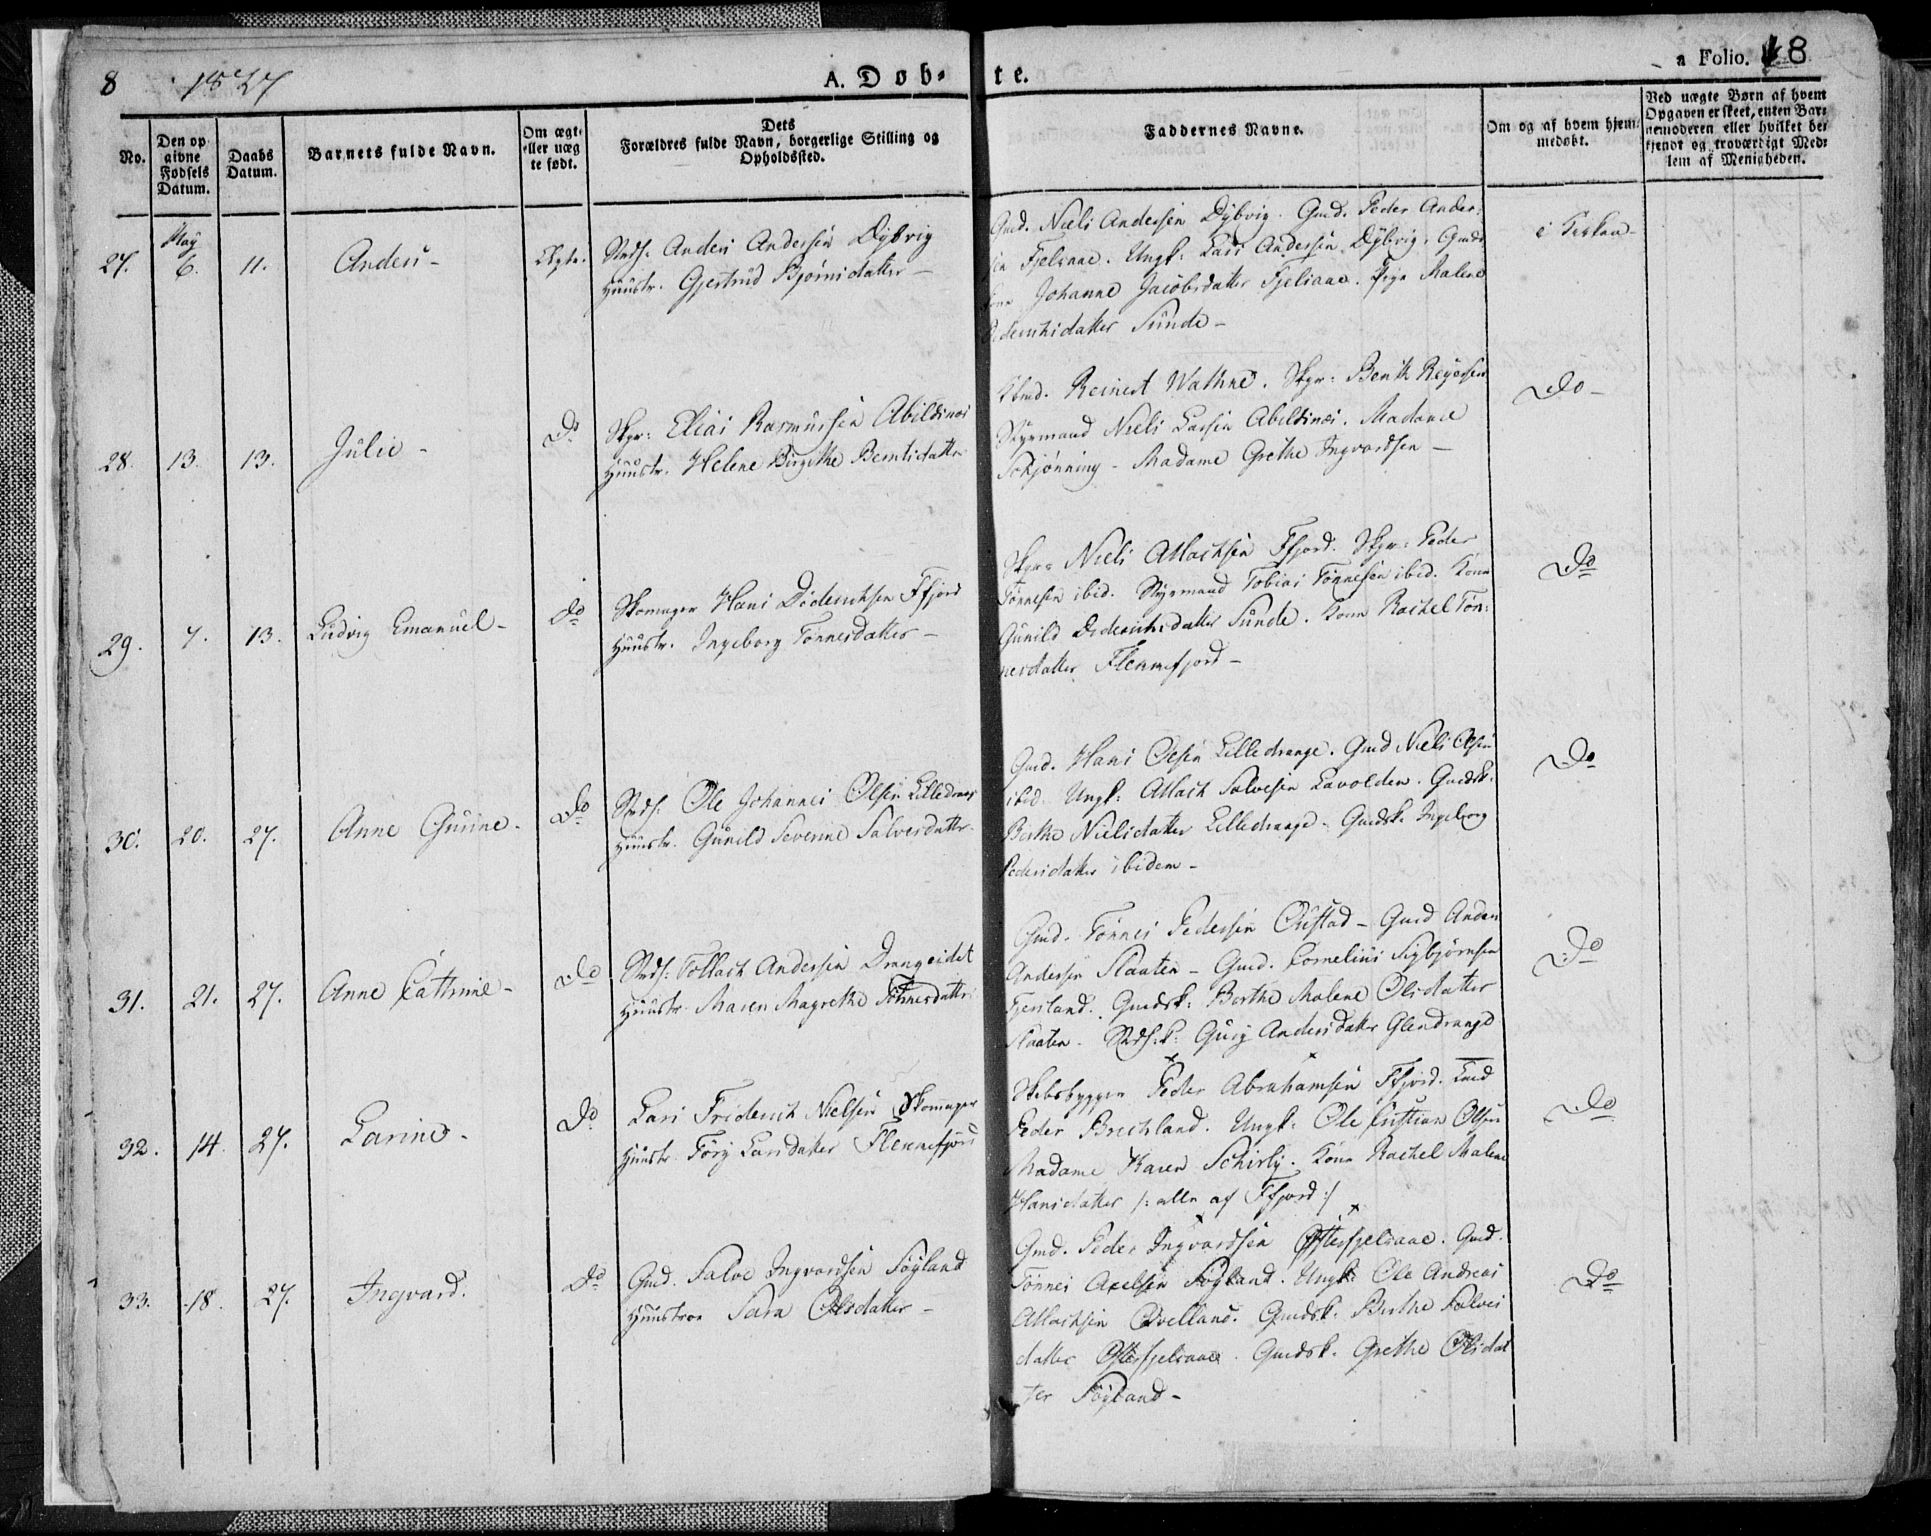 8 1827 A. Døb-
te.
a Folio. 18
No.
Den op
givne
Fødsels
Datum.
Daabs
Datum.
Barnets fulde Navn.
Om ægte
eller uæg
te født.
Dets
Forældres fulde Navn, borgerlige Stilling og
Opholdssted.
Faddernes Navne.
Om og af hvem hjem-
medøbt.
Ved uægte Børn af hvem
Opgaven er skeet, enten Bar-
nemoderen eller hvilket be-
kjendt og troværdigt Med-
lem af Menigheden.
May
27. 6. 11. Anders - Ægte.
Anders Andersen Dÿbvig
Huustr. Gjertrud Bjørnsdatter -
Gmd. Niels Andersen Dÿbvig. Gmd. Peder Ander-
sen Fjelsaae. Ungk: Lars Andersen Dÿbvig. Gmds
kone Johanne Jacobsdatter Fjelsaae. Pige Malene
Diderichsdatter Sunde -
i Kirken -
28. 13. 13. Julie - Do
Skpr: Elias Rasmussen Abildsnæs
Huustr. Helene Birgithe Berntsdatter
Reinert Wathne. Skpr: Benth Reyersen
Styrmand Niels Larsen Abildsnæs. Madame
Schjønning - Madame Grethe Ingvardsen -
Do -
29. 7. 13. Ludvig Emanuel - Do
Skomager Hans Diderichsen Ffjord
Huustr. Ingeborg Tønnesdatter -
Skpr: Niels Atlachsen Ffjord. Skpr: Peder
Tønnesen ibid. Styrmand Tobias Tønnesen ibid. Kone
Gunild Diderichsdatter Sunde. Kone Rachel Tøn-
nesdatter Flekkefjord -
Do
30. 20. 27. Anne Gurine - Do
Ole Johannes Olsen Lilledrange
Huustr. Gunild Severine Salvesdatter
Gmd. Hans Olsen Lilledrange. Gmd Niels Olsen
ibid. Ungk: Atlach Salvesen Lavolden. Gmdsk.
Berthe Nielsdatter Lilledrange - Gmdsk. Ingeborg
Pedersdatter ibidem -
Do
31. 21. 27. Anne Cathrine - Do
Tollach Andersen Drangeidet
Huustr. Maren Magrethe Tønnesdatter
Gmd. Tønnes Pedersen Øustad - Gmd Anders
Andersen Staaten - Gmd. Cornelius Sigbjørnsen
Fjersland. Gmdsk: Berthe Malene Olsdatter
Staaten. Gurÿ Andersdatter Glendrange
Do
32. 14. 27. Larine - Do
Lars Friderich Nielsen Skomager
Huustr. Tørÿ Larsdatter Flekkefjord
Skibsbygger Peder Abrahamsen Ffjord.
Peder Bechland. Ungk: Ole Christian Olsen
Madame Karen Kone Rachel Malene
Hansdatter /: alle af Ffjord :/
Do
33. 18. 27. Ingvard. Do
Gmd. Salve Ingvardsen Føÿland
Huustroe Sara Olsdatter -
Gmd. Peder Ingvardsen Østerfjelsaae. Gmd.
Tønnes Axelsen Føÿland. Ungk: Ole Andreas
Atlachsen Qvelland. Gmdsk: Berthe Salves
datter Østerfjelsaae. Gmdsk. Grethe Olsdat
ter Føÿland -
Do